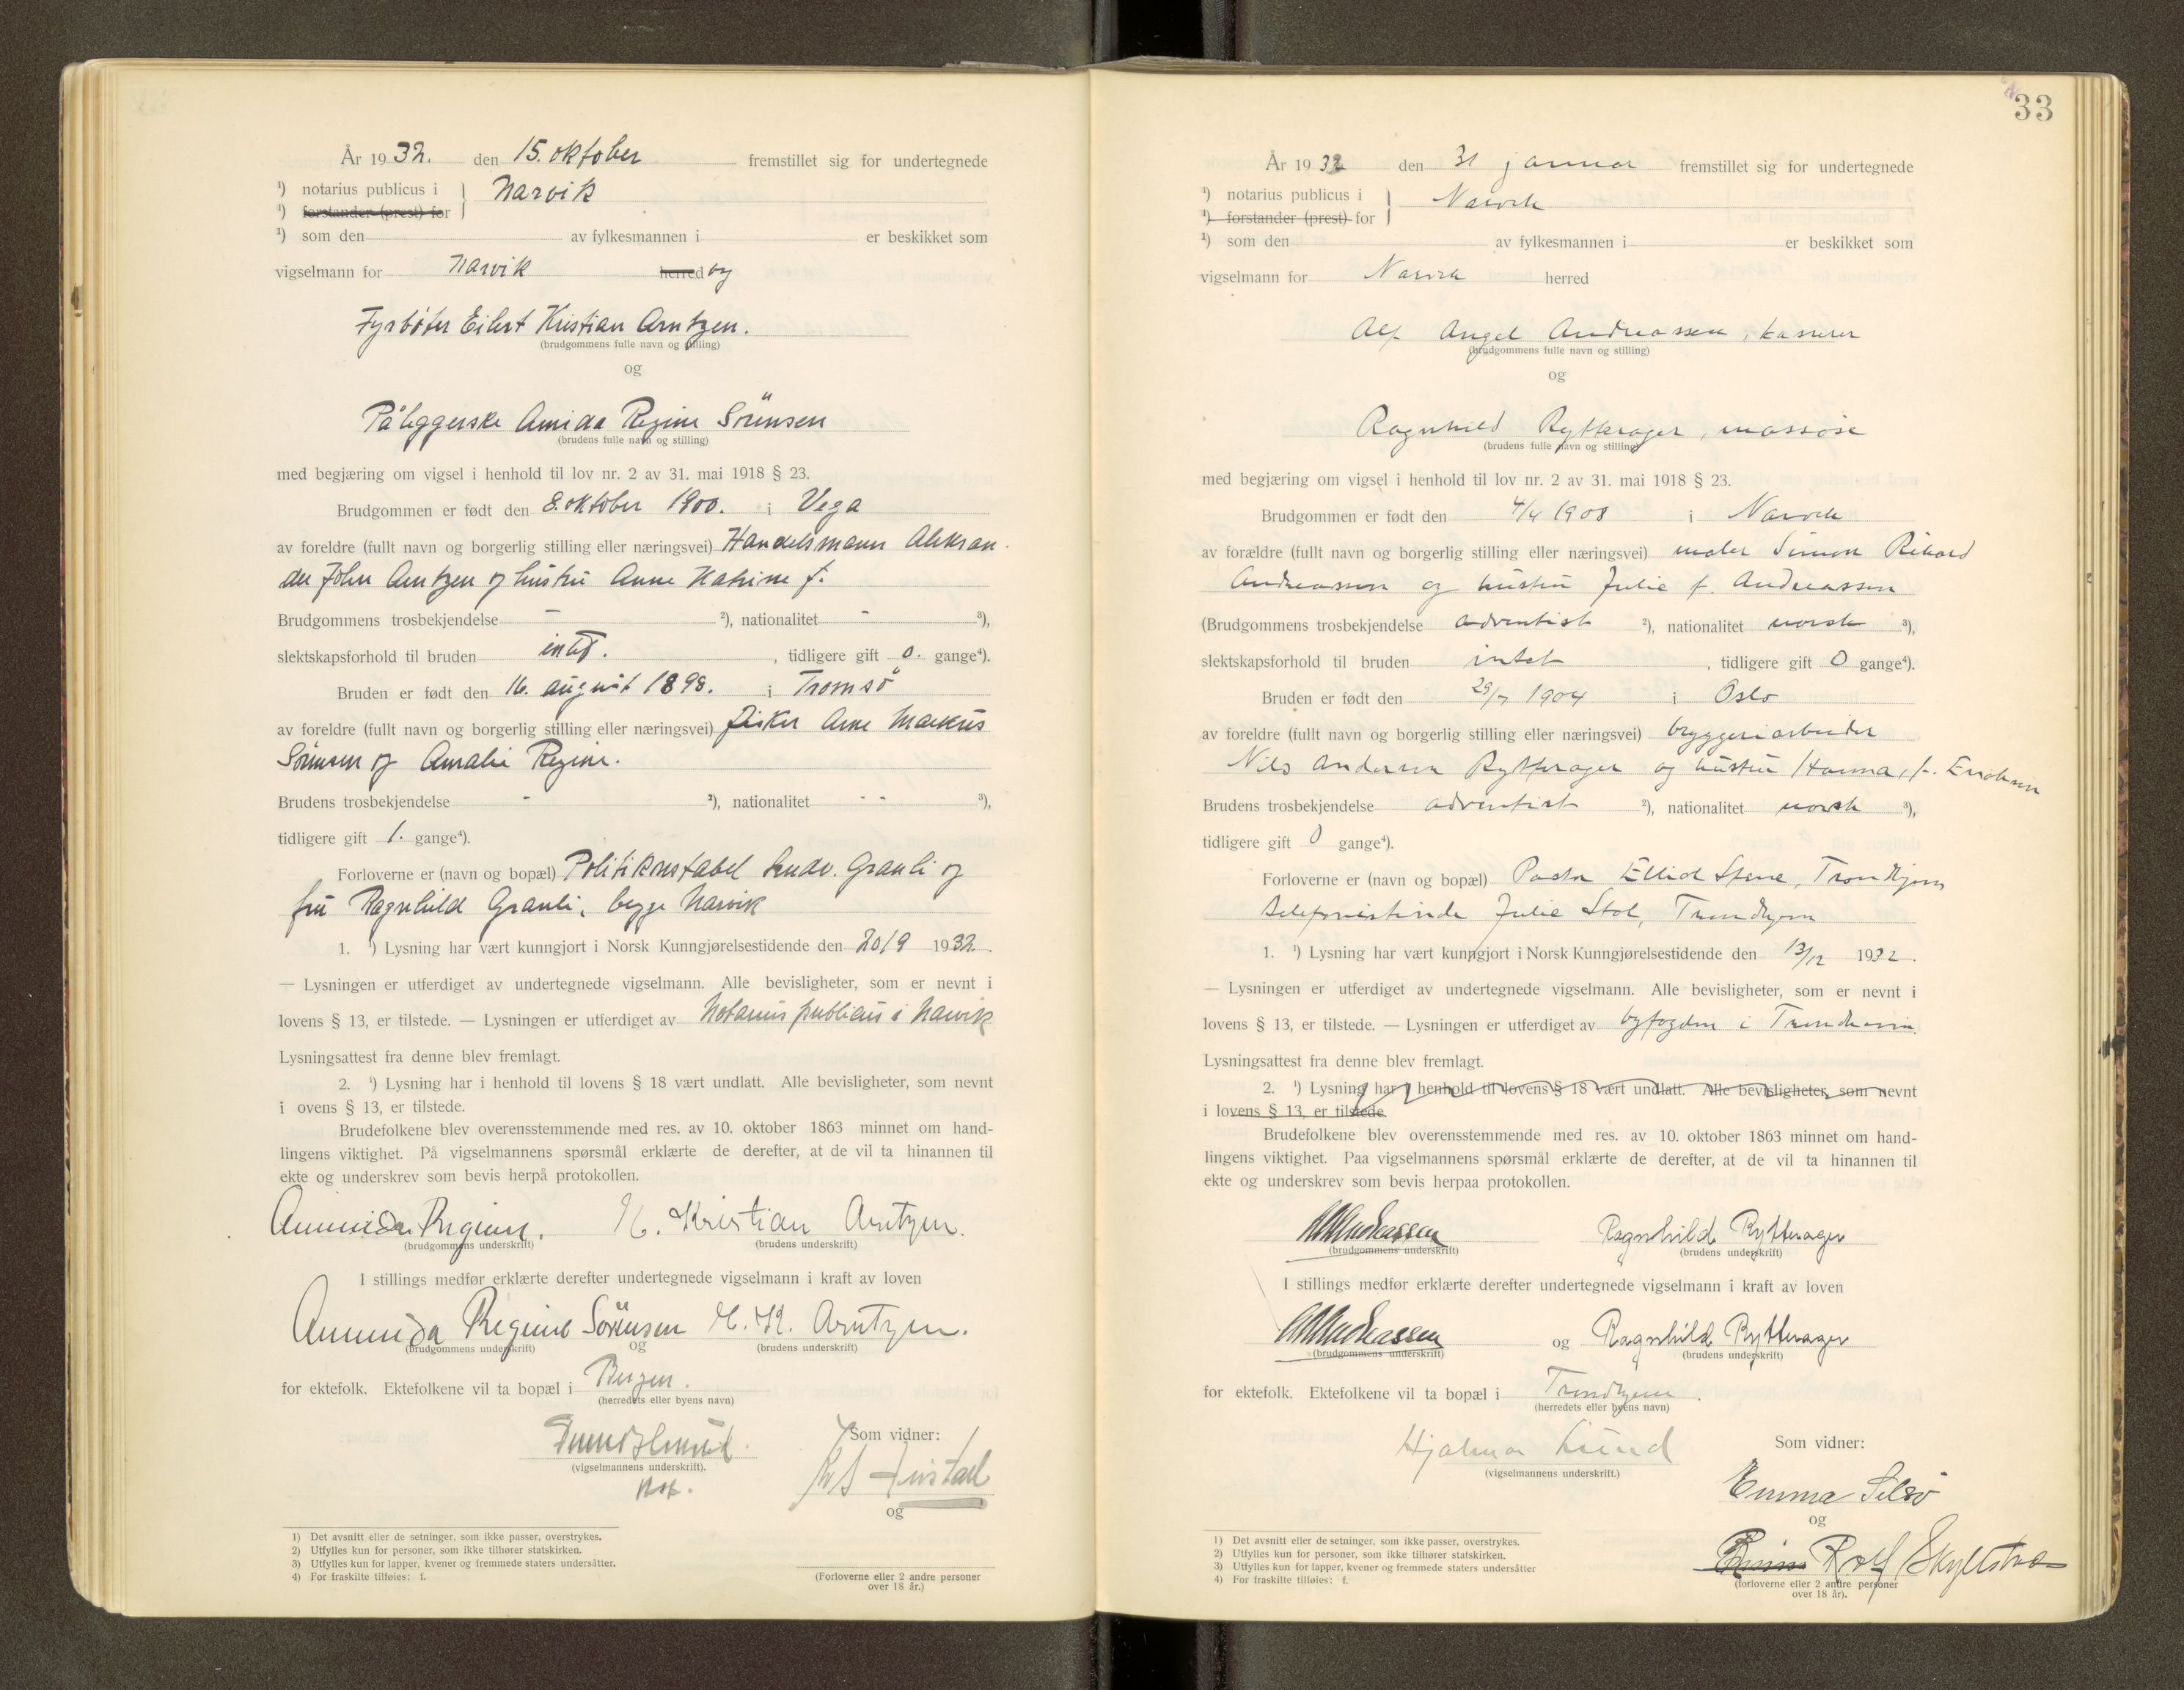 År 19 32. den 15. oktober fremstillet sig for undertegnede
¹) notarius publicus i } Narvik
¹) forstander (prest) for
¹) som den av fylkesmannen i er beskikket som
vigselmann for Narvik herred og
Fyrbøter Eilert Kristian Arntzen.
(brudgommens fulle navn og stilling)
og
Påleggerske Amida Regine Sörensen
(brudens fulle navn og stilling)
med begjæring om vigsel i henhold til lov nr. 2 av 31. mai 1918 § 23.
Brudgommen er født den 8. oktober 1900. i Vega
av foreldre (fullt navn og borgerlig stilling eller næringsvei) Handelsmann Aleksan-
der John Arntzen og hustru Anne Katrine f.
Brudgommens trosbekjendelse - ²), nationalitet - ³),
slektskapsforhold til bruden intet. , tidligere gift 0. gange⁴).
Bruden er født den 16. august 1898. i Tromsö
av foreldre (fullt navn og borgerlig stilling eller næringsvei) fisker Arne Markus
Sörensen og Amalie Regine.
Brudens trosbekjendelse - ²), nationalitet - - ³),
tidligere gift 1. gange⁴).
Forloverne er (navn og bopæl) Politikonstabel Ludv. Granli og
fru Ragnhild Granli, begge Narvik
1. ¹) Lysning har vært kunngjort i Norsk Kunngjørelsestidende den 20/9 1932.
— Lysningen er utferdiget av undertegnede vigselmann. Alle bevisligheter, som er nevnt i
lovens § 13, er tilstede. — Lysningen er utferdiget av Notarius publicus i Narvik
Lysningsattest fra denne blev fremlagt.
2. ¹) Lysning har i henhold til lovens § 18 vært undlatt. Alle bevisligheter, som nevnt
i ovens § 13, er tilstede.
Brudefolkene blev overensstemmende med res. av 10. oktober 1863 minnet om hand-
lingens viktighet. På vigselmannens spørsmål erklærte de derefter, at de vil ta hinannen til
ekte og underskrev som bevis herpå protokollen.
Ammida Regine. Kristian Arntzen.
(brudgommens underskrift) (brudens underskrift)
I stillings medfør erklærte derefter undertegnede vigselmann i kraft av loven
Ammida Regine Sörensen og E. K. Arntzen.
(brudgommens underskrift) (brudens underskrift)
for ektefolk. Ektefolkene vil ta bopæl i Bergen.
(herredets eller byens navn)
Som vidner:
(vigselmannens underskrift).
og
1) Det avsnitt eller de setninger, som ikke passer, overstrykes.
2) Utfylles kun for personer, som ikke tilhører statskirken.
3) Utfylles kun for lapper, kvener og fremmede staters undersåtter.
4) For fraskilte tilføies: f.
(Forloverne eller 2 andre personer
over 18 år.)
33
År 19 32 den 31 januar fremstillet sig for undertegnede
¹) notarius publicus i } Narvik
¹) forstander (prest) for
¹) som den av fylkesmannen i er beskikket som
vigselmann for Narvik herred
Alf Angel Andreassen, kasserer
(brudgommens fulle navn og stilling)
og
Ragnhild Rytterager, massøse
(brudens fulle navn og stilling)
med begjæring om vigsel i henhold til lov nr. 2 av 31. mai 1918 § 23.
Brudgommen er født den 4/4 1908 i Narvik
av forældre (fullt navn og borgerlig stilling eller næringsvei) maler Simon Rikard
Andreassen og hustru Julie f. Andreassen
(Brudgommens trosbekjendelse adventist ²), nationalitet norsk ³),
slektskapsforhold til bruden intet , tidligere gift 0 gange⁴).
Bruden er født den 29/7 1904 i Oslo
av foreldre (fullt navn og borgerlig stilling eller næringsvei) bryggeriarbeider
Nils Andersen Rytterager og hustru Hanna, f. Erichsen
Brudens trosbekjendelse adventist ²), nationalitet norsk ³),
tidligere gift 0 gange⁴).
Forloverne er (navn og bopæl) Pastor Elliot Stene, Trondhjem
telefonistinde Julie Stol, Trondhjem
1. ¹) Lysning har vært kunngjort i Norsk Kunngjørelsestidende den 13/12 1932.
— Lysningen er utferdiget av undertegnede vigselmann. Alle bevisligheter, som er nevnt i
lovens § 13, er tilstede. — Lysningen er utferdiget av byfogden i Trondheim.
Lysningsattest fra denne blev fremlagt.
2. ¹) Lysning har i henhold til lovens § 18 vært undlatt. Alle bevisligheter, som nevnt
i lovens § 13, er tilstede.
Brudefolkene blev overensstemmende med res. av 10. oktober 1863 minnet om hand-
lingens viktighet. Paa vigselmannens spørsmål erklærte de derefter, at de vil ta hinannen til
ekte og underskrev som bevis herpaa protokollen.
AA Andreassen Ragnhild Rytterager
(brudgommens underskrift) (brudens underskrift)
I stillings medfør erklærte derefter undertegnede vigselmann i kraft av loven
AA Andreassen og Ragnhild Rytterager
(brudgommens underskrift) (brudens underskrift)
for ektefolk. Ektefolkene vil ta bopæl i Trondhjem.
(herredets eller byens navn)
Hjalmar Lund Som vidner:
(vigselmannens underskrift.)
Emma Selsö
og
Rolf Skyllstad
(forloverne eller 2 andre personer
over 18 år).
1) Det avsnitt eller de setninger, som ikke passer, overstrykes.
2) Utfylles kun for personer, som ikke tilhører statskirken.
3) Utfylles kun for lapper, kvener og fremmede staters undersåtter
4) For fraskilte tilføies: f.